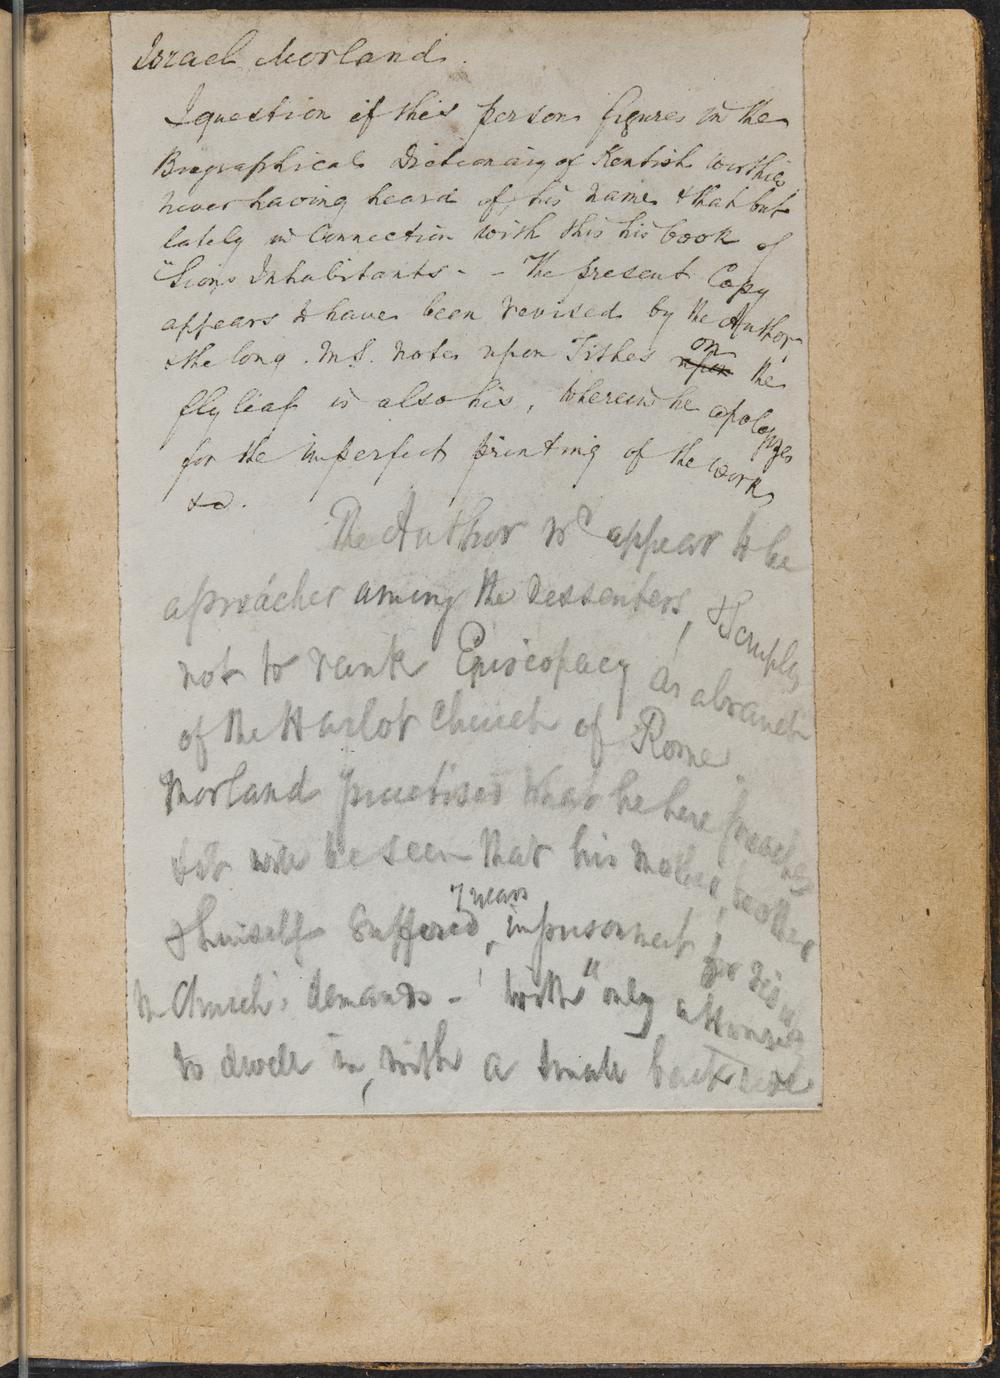 Israel Morland.
I question if this person figures in the
Biographical Dictionary of Kentish Worthies
never having heard of his name & that but
lately in Connection with this his book of
"Sions Inhabitants - - The present Copy
appears to have been revised by the Author,
& the long . M.S. notes upon Tithes upon on the
fly leaf is also his, wherein he apologizes
for the imperfect printing of the work
&c.
The Author wd appear to be
a preacher among the Dessenters, & Scruples
not to rank Episcopacy as a branch
of the Harlot Church of Rome
Morland practised what he here preaches
& it will be seen that his Mother, brother
& himself Suffered, 7 years imprisonment for
in Church's demands - with "only a House
to dwell in, with a small back side